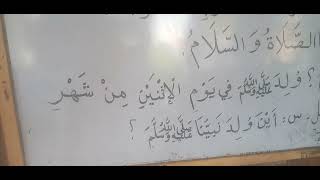 الصَّلَاةُ وَالسَّلَامُ.
؟ وُلِدَ ﷺ فِي يَوْمِ الْإِثْنَيْنِ مِنْ شَهْرِ
س: أَيْنَ وُلِدَ نَبِيُّنَا ﷺ؟